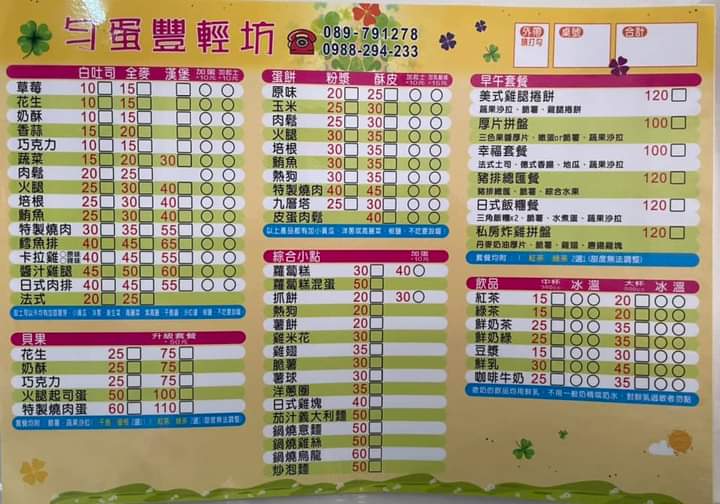 勻蛋豐輕坊
089-791278
0988-294-233
外帶 請打勾
桌號
合計
白吐司 全麥 漢堡 加蛋+10元 加起士+10元
草莓 10 15
花生 10 15
奶酥 10 15
香蒜 15 20
巧克力 10 15
蔬菜 15 20 30
肉鬆 20 25
火腿 25 30 40
培根 25 30 40
鮪魚 25 30 40
特製燒肉 30 35 55
鱈魚排 40 45 65
卡拉雞 40 45 55
醬汁雞腿 45 50 60
日式肉排 40 45 55
法式 20 25
貝果 升級套餐 +50元
花生 25 75
奶酥 25 75
巧克力 25 75
火腿起司蛋 50 100
特製燒肉蛋 60 110
蛋餅 粉漿 酥皮
原味 20 25
玉米 25 30
肉鬆 25 30
火腿 30 35
培根 30 35
鮪魚 30 35
熱狗 30 35
特製燒肉 40 45
九層塔 30 35
皮蛋肉鬆 40
綜合小點 加蛋+10元
蘿蔔糕 30 40
蘿蔔糕混蛋 50
抓餅 20 30
熱狗 20
薯餅 20
雞米花 30
雞翅 35
脆薯 30
薯球 30
洋蔥圈 35
日式雞塊 40
茄汁義大利麵 50
鍋燒意麵 50
鍋燒雞絲 50
鍋燒烏龍 60
炒泡麵 50
早午套餐
美式雞腿捲餅 120
蔬果沙拉、脆薯、雞腿捲餅
厚片拼盤 100
三色果醬厚片、嫩蛋or脆薯、蔬果沙拉
幸福套餐 100
法式土司、德式香腸、地瓜、蔬果沙拉
豬排總匯餐 120
豬排總匯、脆薯、綜合水果
日式飯糰餐 120
三角飯糰x2、脆薯、水煮蛋、蔬果沙拉
私房炸雞拼盤 120
丹麥奶油厚片、脆薯、雞翅、唐揚雞塊
套餐均附 | 紅茶 綠茶 (2選1)(甜度無法調整)
飲品 中杯 冰 溫 大杯 冰 溫
紅茶 15 20
綠茶 15 20
鮮奶茶 25 35
鮮奶綠 25 35
豆漿 15 30
鮮乳 30 45
咖啡牛奶 25 35